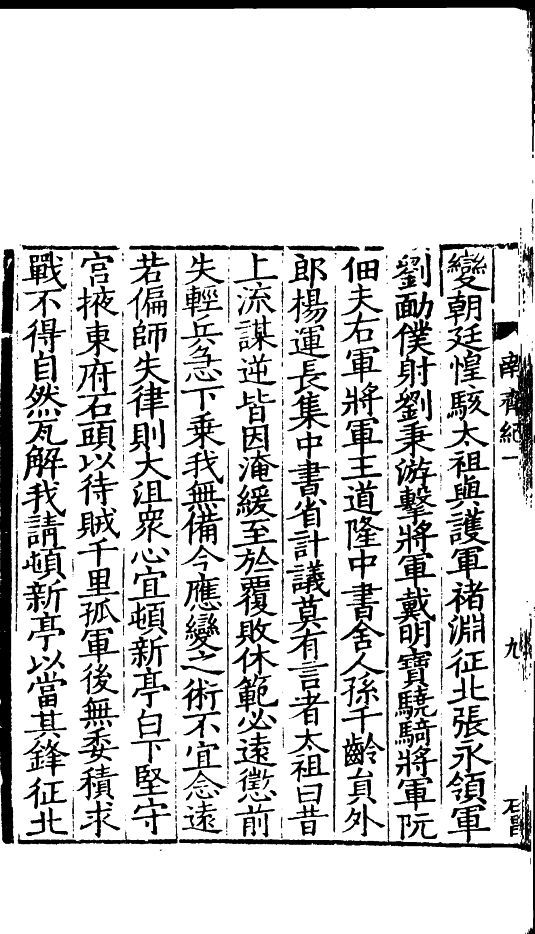 南齊紀一
九
變朝廷惶駭太祖與護軍褚淵征北張永領軍
劉勔僕射劉秉游擊將軍戴明寶驍騎將軍阮
佃夫右軍將軍王道隆中書舍人孫千齡員外
郎楊運長集中書省計議莫有言者太祖曰昔
上流謀逆皆因淹緩至於覆敗休範必遠懲前
失輕兵急下乗我無備今應變之術不宜念遠
若偏師失律則大沮衆心宜頓新亭白下堅守
宫掖東府石頭以待賊千里孤軍後無委積求
戰不得自然瓦解我請頓新亭以當其鋒征北